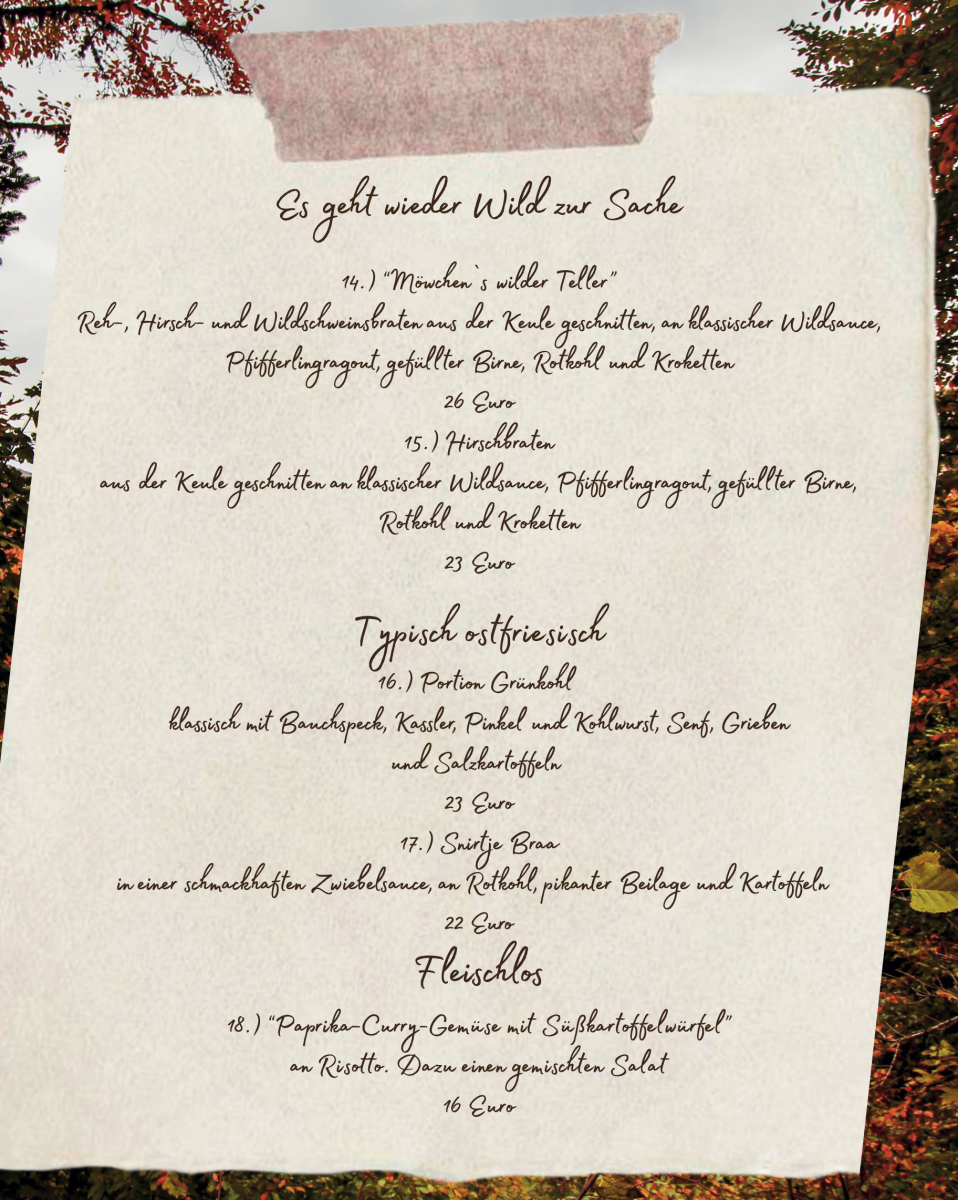 Es geht wieder Wild zur Sache
14.) "Möwchen`s wilder Teller"
Reh-, Hirsch- und Wildschweinsbraten aus der Keule geschnitten, an klassischer Wildsauce,
Pfifferlingragout, gefüllter Birne, Rotkohl und Kroketten
26 Euro
15.) Hirschbraten
aus der Keule geschnitten an klassischer Wildsauce, Pfifferlingragout, gefüllter Birne,
Rotkohl und Kroketten
23 Euro
Typisch ostfriesisch
16.) Portion Grünkohl
klassisch mit Bauchspeck, Kassler, Pinkel und Kohlwurst, Senf, Grieben
und Salzkartoffeln
23 Euro
17.) Snirtje Braa
in einer schmackhaften Zwiebelsauce, an Rotkohl, pikanter Beilage und Kartoffeln
22 Euro
Fleischlos
18.) "Paprika-Curry-Gemüse mit Süßkartoffelwürfel"
an Risotto. Dazu einen gemischten Salat
16 Euro